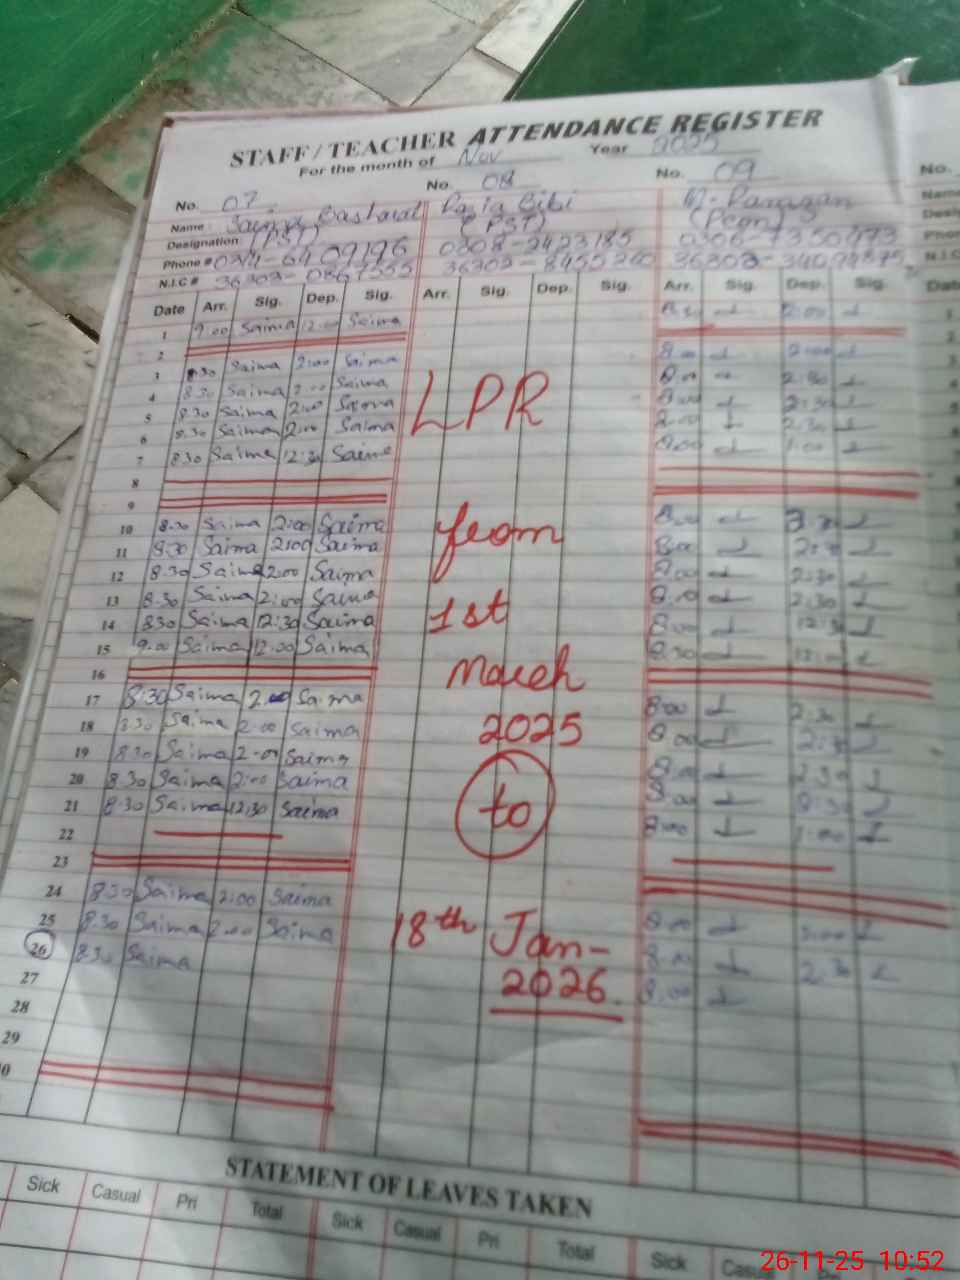 STAFF / TEACHER ATTENDANCE REGISTER
For the month of Nov Year 2025
No. 07 No. 08 No. 09 No.
Name: Saima Basharat Razia Bibi Name
Designation (PST) (PST) (Peon)
Phone # 0308-2423185 Phone
N.I.C # 36302-0867555 36302-8455240 36302- N.I.C
Date Arr. Sig. Dep. Sig. Arr. Sig. Dep. Sig. Arr. Sig. Dep. Sig. Date
1 9.00 Saima 12:00 Saima 2:00
2
3 8.30 Saima 2:00 Saima 8.00 2:00
4 8.30 Saima 2:00 Saima 8.00 2:30
5 8.30 Saima 2:00 Saima 8.00 2:30
6 8.30 Saima 2:00 Saima 8.00 2.30
7 8.30 Saima 12:30 Saima 8.00 1.00
LPR
8
9
10 8.30 Saima 2:00 Saima 8.00 2.30
from
11 8:30 Saima 2:00 Saima 8:00 2:30
12 8.30 Saima 2:00 Saima 8.00 2:30
13 8.30 Saima 2:00 Saima 8.00 2:30
1st
14 8.30 Saima 12:30 Saima 8.00 12:30
15 9.00 Saima 12.00 Saima 8.30 12:00
16
March
17 8:30 Saima 2.00 Saima 8.00 2:30
18 8.30 Saima 2.00 Saima 8.00 2:30
2025
19 8.30 Saima 2.00 Saima 8.00 2.30
20 8.30 Saima 2:00 Saima 8.00 2:30
to
21 8:30 Saima 12:30 Saima 8:00 1:00
22
23
24 8.30 Saima 2:00 Saima 8.00 2:00
25 8.30 Saima 2.00 Saima 8.00 2.30
18th Jan-
26 8.30 Saima 8.00
2026.
27
28
29
STATEMENT OF LEAVES TAKEN
Sick Casual Pri Total Sick Casual Pri Total Sick
26-11-25 10:52